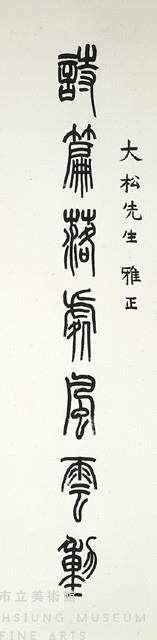 大松先生 雅正
詩篇落處風雲動
市立美術館
HSIUNG MUSEUM
FINE ARTS